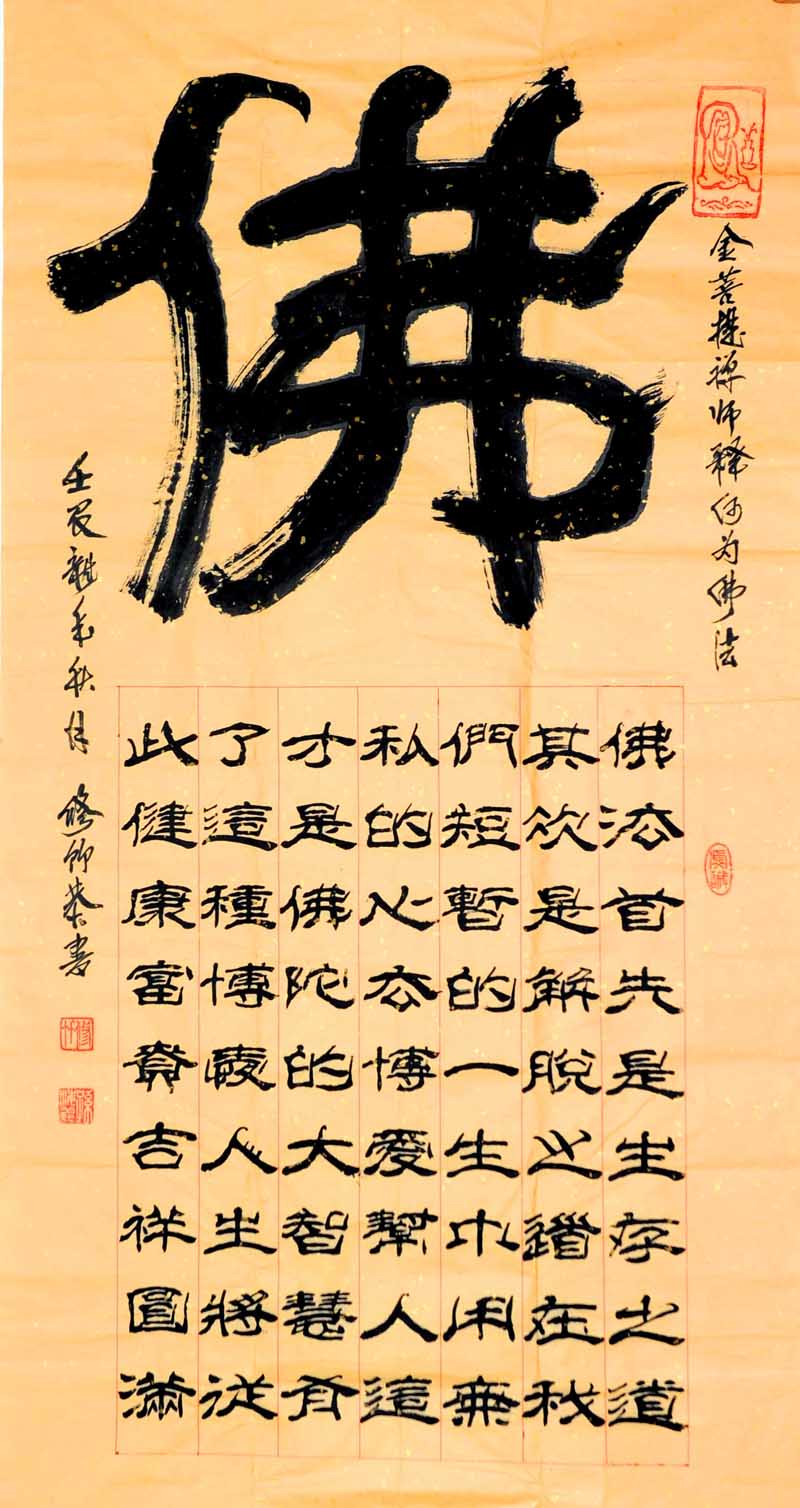 佛
金菩提禅师释何为佛法
佛法首先是生存之道
其次是解脫之道在我
們短暫的一生中用無
私的心态博愛幫人這
才是佛陀的大智慧有
了這種博愛人生將從
此健康富貴吉祥圓滿
壬辰龍年秋月
恭书